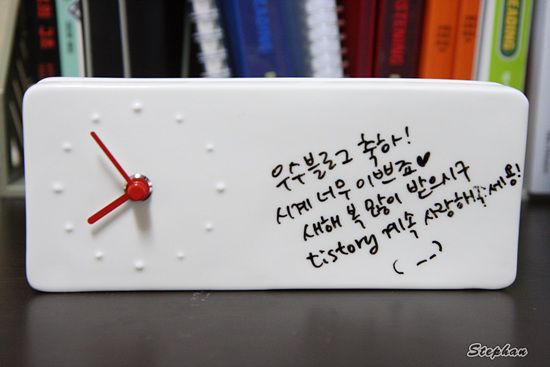 READING
LISTENING
우수블로그 축하!
시계 너무 이쁘죠♥
새해 복 많이 받으시구
tistory 계속 사랑해주세용!
( _ _ )
Stephan